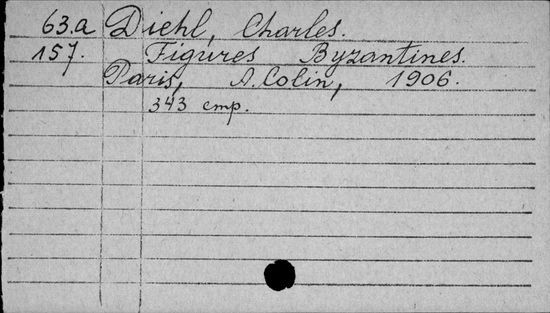 63.a Diehl, Charles.
157. Figures Byzantines.
Paris, A. Colin, 1906.
343 стр.